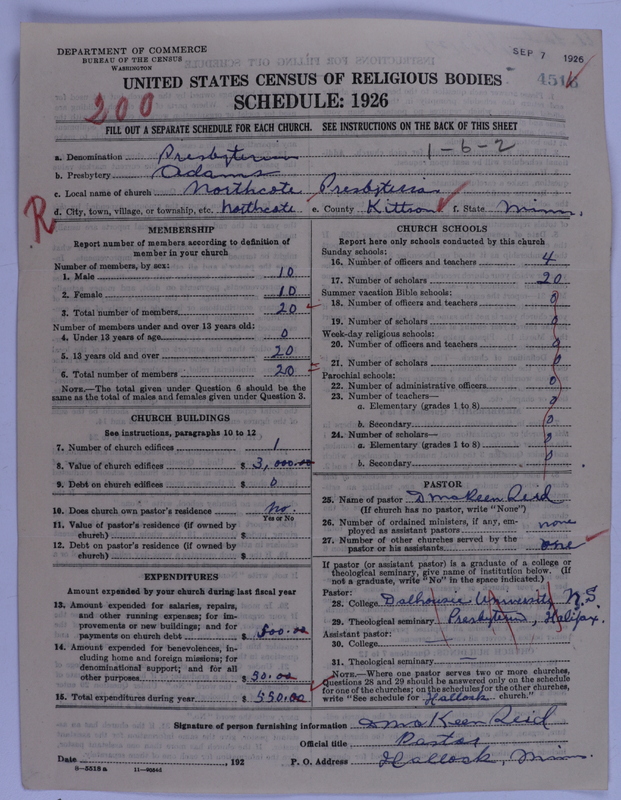 DEPARTMENT OF COMMERCE
BUREAU OF THE CENSUS
WASHINGTON
SEP 7 1926
UNITED STATES CENSUS OF RELIGIOUS BODIES
SCHEDULE: 1926
200
FILL OUT A SEPARATE SCHEDULE FOR EACH CHURCH. SEE INSTRUCTIONS ON THE BACK OF THIS SHEET
1-6-2
a. Denomination Presbyterian
b. Presbytery Adams
c. Local name of church Northcote Presbyterian
R
d. City, town, village, or township, etc. Northcote e. County Kittson f. State Minn.
MEMBERSHIP
Report number of members according to definition of
member in your church
Number of members, by sex:
1. Male 10
2. Female 10
3. Total number of members 20
Number of members under and over 13 years old:
4. Under 13 years of age 0
5. 13 years old and over 20
6. Total number of members 20
NOTE.—The total given under Question 6 should be the
same as the total of males and females given under Question 3.
CHURCH BUILDINGS
See instructions, paragraphs 10 to 12
7. Number of church edifices 1
8. Value of church edifices $ 3,000.00
9. Debt on church edifices $ 0
10. Does church own pastor's residence No.
Yes or No
11. Value of pastor's residence (if owned by
church) $
12. Debt on pastor's residence (if owned by
church) $
EXPENDITURES
Amount expended by your church during last fiscal year
13. Amount expended for salaries, repairs,
and other running expenses; for im-
provements or new buildings; and for
payments on church debt $ 500.00
14. Amount expended for benevolences, in-
cluding home and foreign missions; for
denominational support; and for all
other purposes $ 50.00
15. Total expenditures during year $ 550.00
CHURCH SCHOOLS
Report here only schools conducted by this church
Sunday schools:
16. Number of officers and teachers 4
17. Number of scholars 20
Summer vacation Bible schools:
18. Number of officers and teachers 0
19. Number of scholars 0
Week-day religious schools:
20. Number of officers and teachers 0
21. Number of scholars 0
Parochial schools:
22. Number of administrative officers 0
23. Number of teachers—
a. Elementary (grades 1 to 8) 0
b. Secondary 0
24. Number of scholars—
a. Elementary (grades 1 to 8) 0
b. Secondary 0
PASTOR
25. Name of pastor D McKeen Reid
(If church has no pastor, write "None")
26. Number of ordained ministers, if any, em-
ployed as assistant pastors none
27. Number of other churches served by the
pastor or his assistants one
If pastor (or assistant pastor) is a graduate of a college or
theological seminary, give name of institution below. (If
not a graduate, write "No" in the space indicated.)
Pastor:
28. College Dalhousie University N.S.
29. Theological seminary Presbyterian, Halifax.
Assistant pastor:
30. College —
31. Theological seminary —
NOTE.—Where one pastor serves two or more churches,
Questions 28 and 29 should be answered only on the schedule
for one of the churches; on the schedules for the other churches,
write "See schedule for Hallock church."
Signature of person furnishing information D McKeen Reid
Official title Pastor
Date , 192 P. O. Address Hallock, Minn.
8—5518a 11—90544